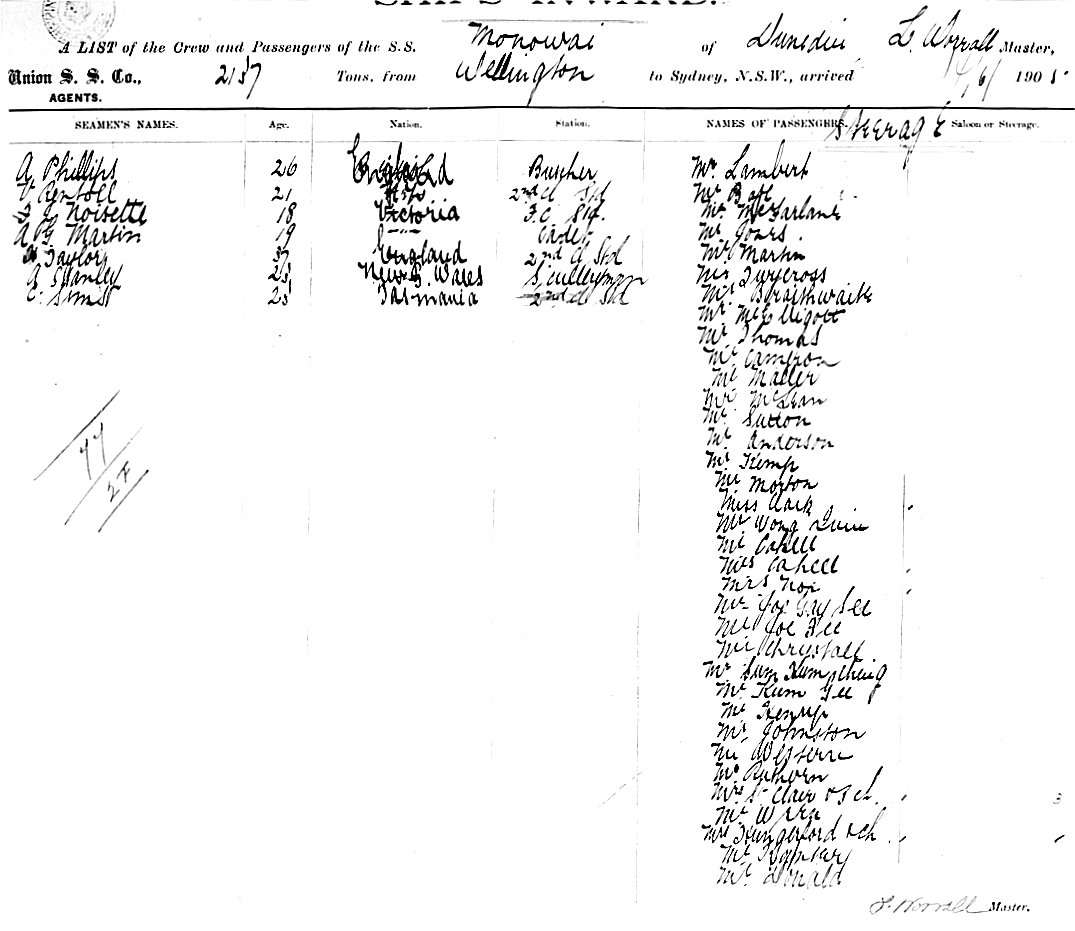 SHIPS INWARD.
A LIST of the Crew and Passengers of the S.S. Monowai of Dunedin L. Worrall Master,
Union S. S. Co., 2137 Tons, from Wellington to Sydney, N.S.W., arrived 4/6/ 1905
AGENTS.
SEAMEN'S NAMES. Age. Nation. Station. NAMES OF PASSENGERS. Steerage Saloon or Steerage.
A Phillips 26 England Butcher Mr Lambert
21 2nd Cl Std Mr
18 Victoria F.C. Std. Mr McFarlane
A G. Martin 19 " Cadet Mr Jones
Taylor 37 England 2nd Cl Std Mr Martin
A Stanley 23 New S. Wales Sculleryman Mr Twycross
E. 23 Tasmania 2nd Cl Std Mr Braithwaite
Mr McElligott
Mr Thomas
Mr Cameron
Mr Maller
Mr McLean
Mr Sutton
Mr Anderson
Mr Kemp
Mr Morton
Miss Clark
Mr Wong
Mr Cahill
Mrs Cahill
Mrs Noe
Mr Joe Gay See
Mr Joe Fee
Mr Chrystall
Mr Sum Kum
Mr Kum Yee
Mr Henry
Mr Johnston
Mr Western
Mr
Mrs St Clair & 3 ch. 3
Mr
Mrs Hungerford & ch
Mr
Mr Donald
77
27
L. Worrall Master.